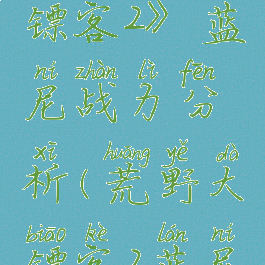 镖客2》 蓝
ní zhàn lì fēn
尼战力分
xī huāng yě dà
析(荒野大
biāo kè lán ní
镖客2蓝尼